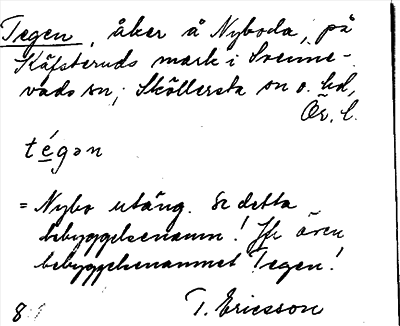 Tegen, åker å Nyboda, på
Käfsteruds mark i Svenne-
vads sn, Sköllersta sn o. hd,
Ör. l.
tégən
= Nybo utäng. Se detta
bebyggelsenamn! Jfr även
bebyggelsenamnet Tegen!
T. Ericsson